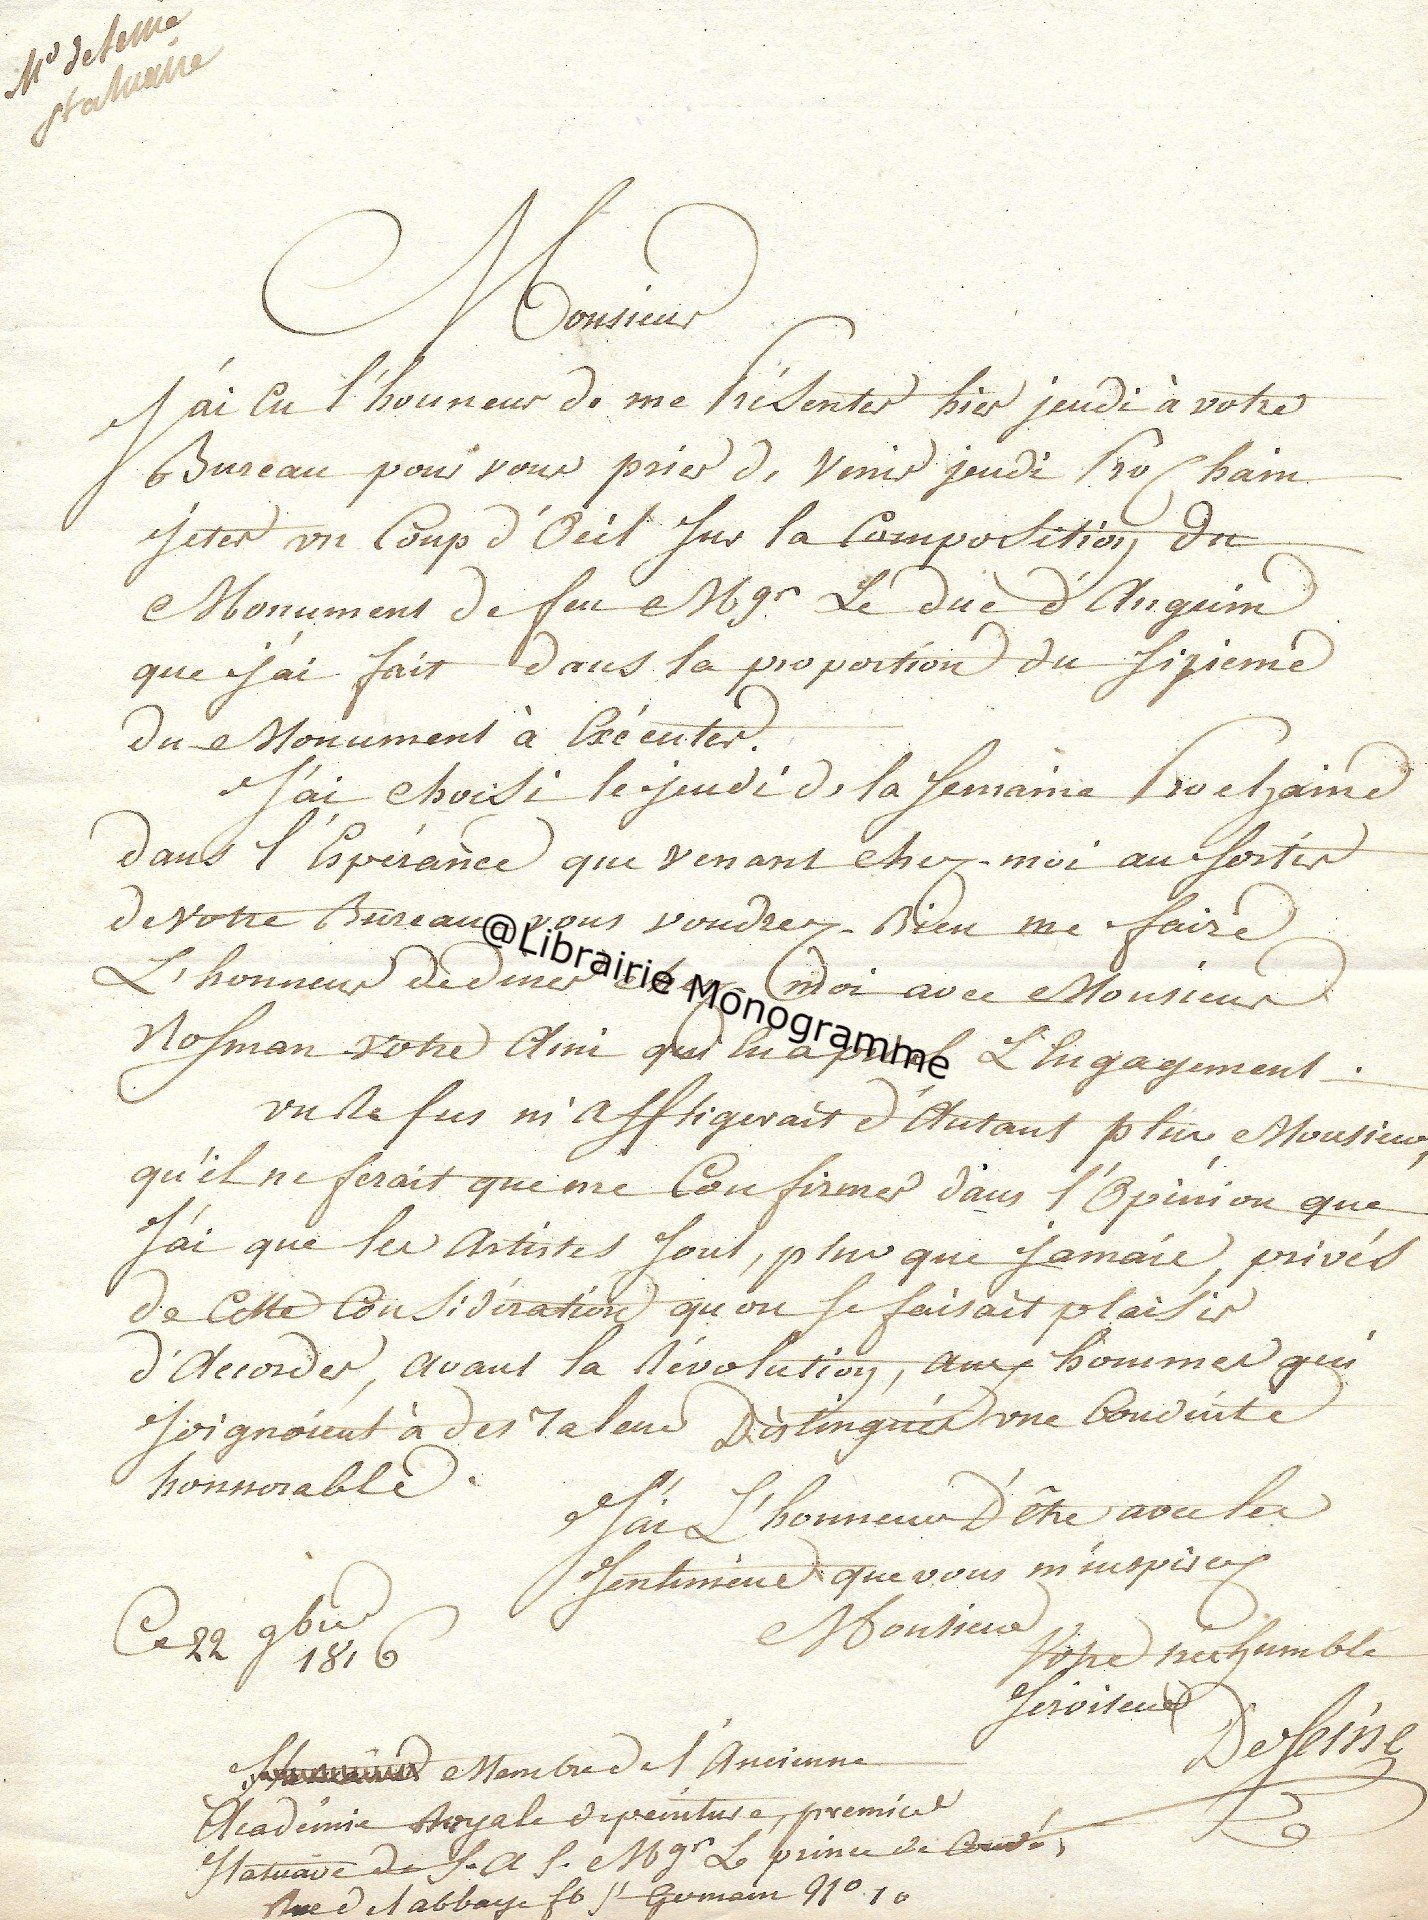 Mr deseine
statuaire
Monsieur
J'ai Eu l'honneur de me Présenter hier jeudi à votre
Bureau pour vous prier de Venir jeudi Prochain
jeter un Coup d'Oeil Sur la Composition du
Monument de feu Mgr Le duc d'Anguien
que j'ai fait dans la proportion du Sixieme
du Monument à Exécuter.
J'ai choisi le jeudi de la Semaine Prochaine
dans l'Espérance que venant chez-moi au Sortir
de votre Bureau vous voudrez-Bien me faire
L'honneur de diner chez moi avec Monsieur
Nosman votre Ami qui En a pris L'Engagement.
un Refus m'affligerait d'Autant plus Monsieur,
qu'il ne ferait que me Confirmer dans l'Opinion que
J'ai que les Artistes Sont, plus que jamais, privés
de Cette Considération qu'on se faisait plaisir
d'Accorder, avant la Révolution, aux hommes qui
joignoient à des Talens Distingués une Conduite
honnorable.
J'ai L'honneur D'être avec les
Sentimens que vous m'inspirez
Monsieur
Votre très humble
Serviteur
DeSeine
Ce 22 9bre
1816
Membre de l'Ancienne
Académie Royale de peinture, premier
Statuaire de S. A S. Mgr Le prince de Condé,
Rue de l'abbaye fb St Germain No 10
@Librairie Monogramme